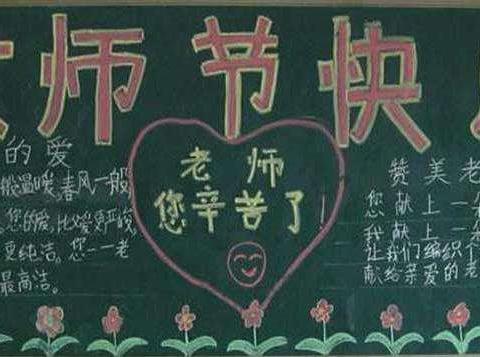 师节快
的爱
般温暖,春风一般
您的爱,比
更纯洁。您——老
最高洁。
老师
您辛苦了!
赞美老
您献上一
我献上一
让我们编织
献给亲爱的老